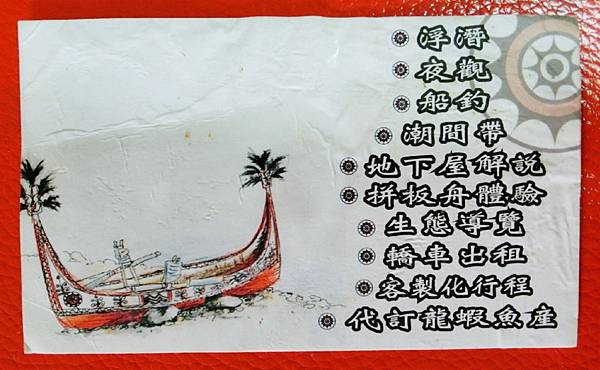 浮潛
夜觀
船釣
潮間帶
地下屋解說
拼板舟體驗
生態導覽
轎車出租
客製化行程
代訂龍蝦魚產